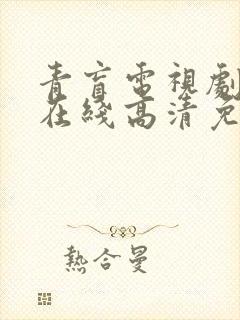 青盲電視劇
在綫高清免
熱合曼